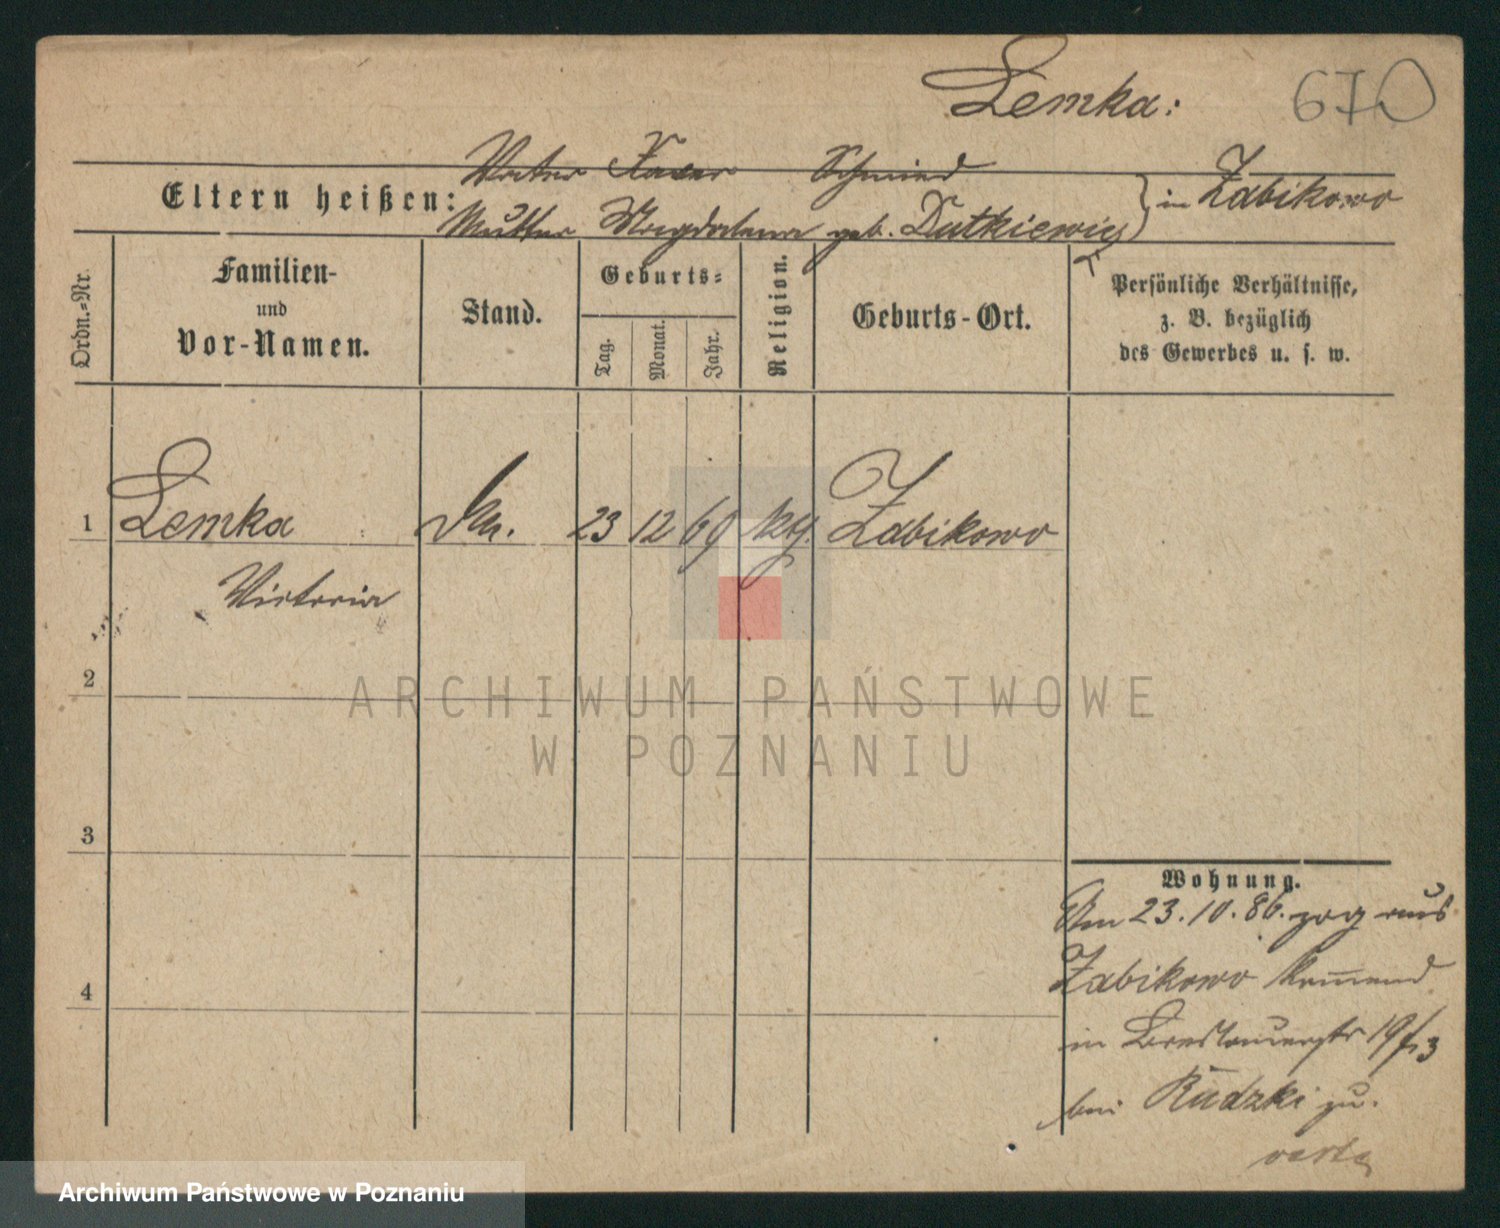 Lemka: 670
Vater Xaver Schmied
Eltern heißen: in Zabikowo
Mutter Magdalena geb. Dutkiewicz
Ordn.-Nr.
Familien-
und
Vor-Namen.
Stand.
Geburts-
Tag. Monat. Jahr.
Religion.
Geburts-Ort.
Persönliche Verhältnisse,
z. B. bezüglich
des Gewerbes u. s. w.
1 Lemka 23 12 69 Zabikowo
Victoria
2
3
4
Wohnung.
Am 23.10.86. zog aus
Zabikowo kommend
in Breslauerstr 19/13
bei Rudzki zu.
ARCHIWUM PAŃSTWOWE
W POZNANIU
Archiwum Państwowe w Poznaniu